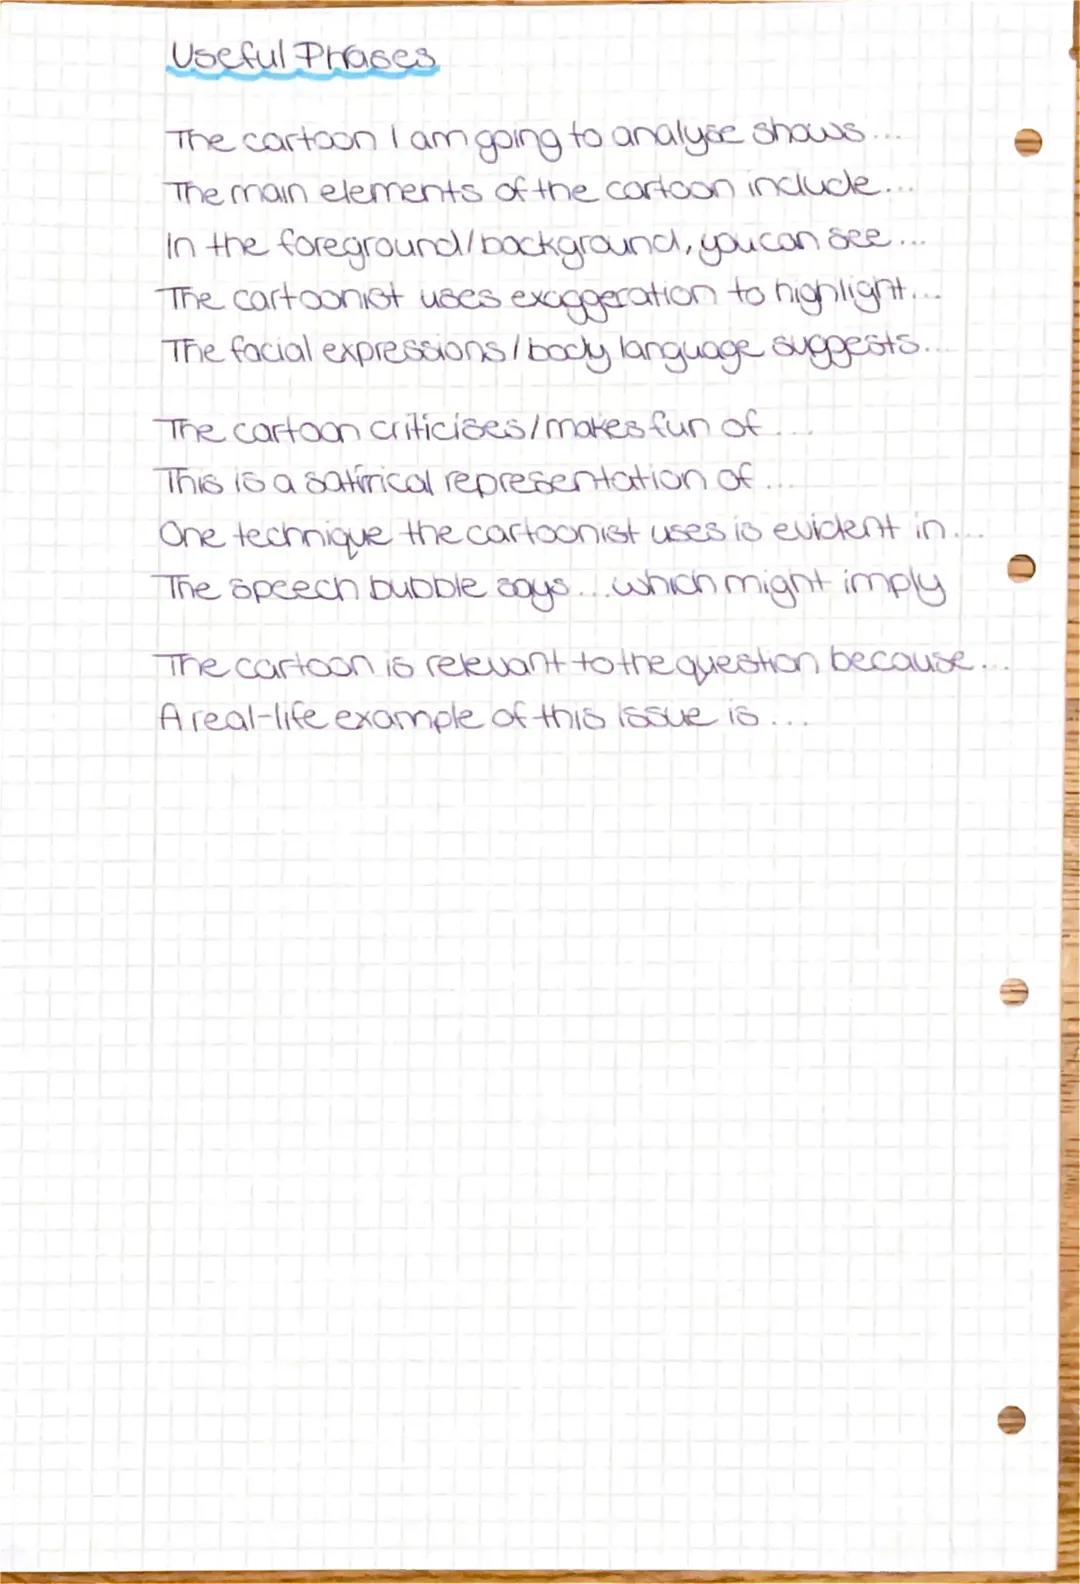 Useful Phrases
The cartoon I am going to analyse shows...
The main elements of the cartoon include...
In the foreground/background, you can see...
The cartoonist uses exaggeration to highlight...
The facial expressions/body language suggests...
The cartoon criticises/makes fun of...
This is a satirical representation of...
One technique the cartoonist uses is evident in...
The speech bubble says...which might imply
The cartoon is relevant to the question because...
A real-life example of this issue is...